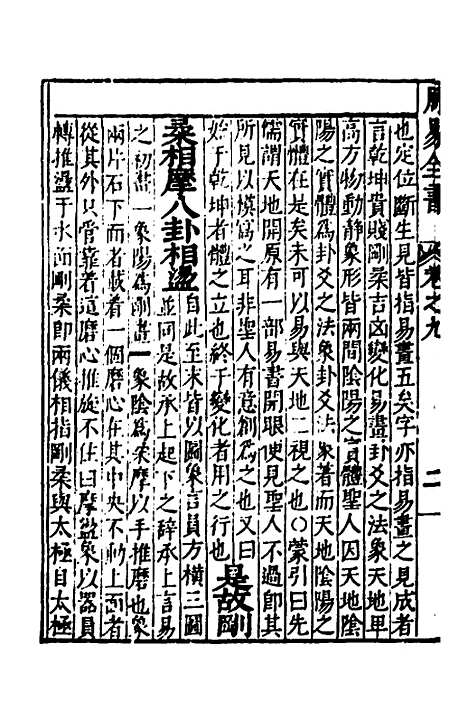 易全書
卷之九
二
也定位斷生見皆指易畫五矣字亦指易畫之見成者
言乾坤貴賤剛柔吉凶變化易畫卦爻之法象天地卑
高方物動靜象形皆兩間陰陽之實體聖人因天地陰
陽之實體為卦爻之法象卦爻法象著而天地陰陽之
實體在是矣未可以易與天地二視之也○蒙引曰先
儒謂天地開原有一部易書開眼便見聖人不過即其
所見以模寫之耳非聖人有意創為之也又曰
始于乾坤者體之立也終于變化者用之行也 是故剛
柔相摩八卦相盪 自此至末皆以圖象言員方橫三圖
並同是故承上起下之辭承上言易
之初畫一象陽為剛畫一象陰為柔摩以手推磨也象
兩片石下面者載着一個磨心在其中央不動上面者
從其外只管靠着這磨心推旋不住曰摩盪象以器員
轉推盪于水面剛柔即兩儀相指剛柔與太極自太極